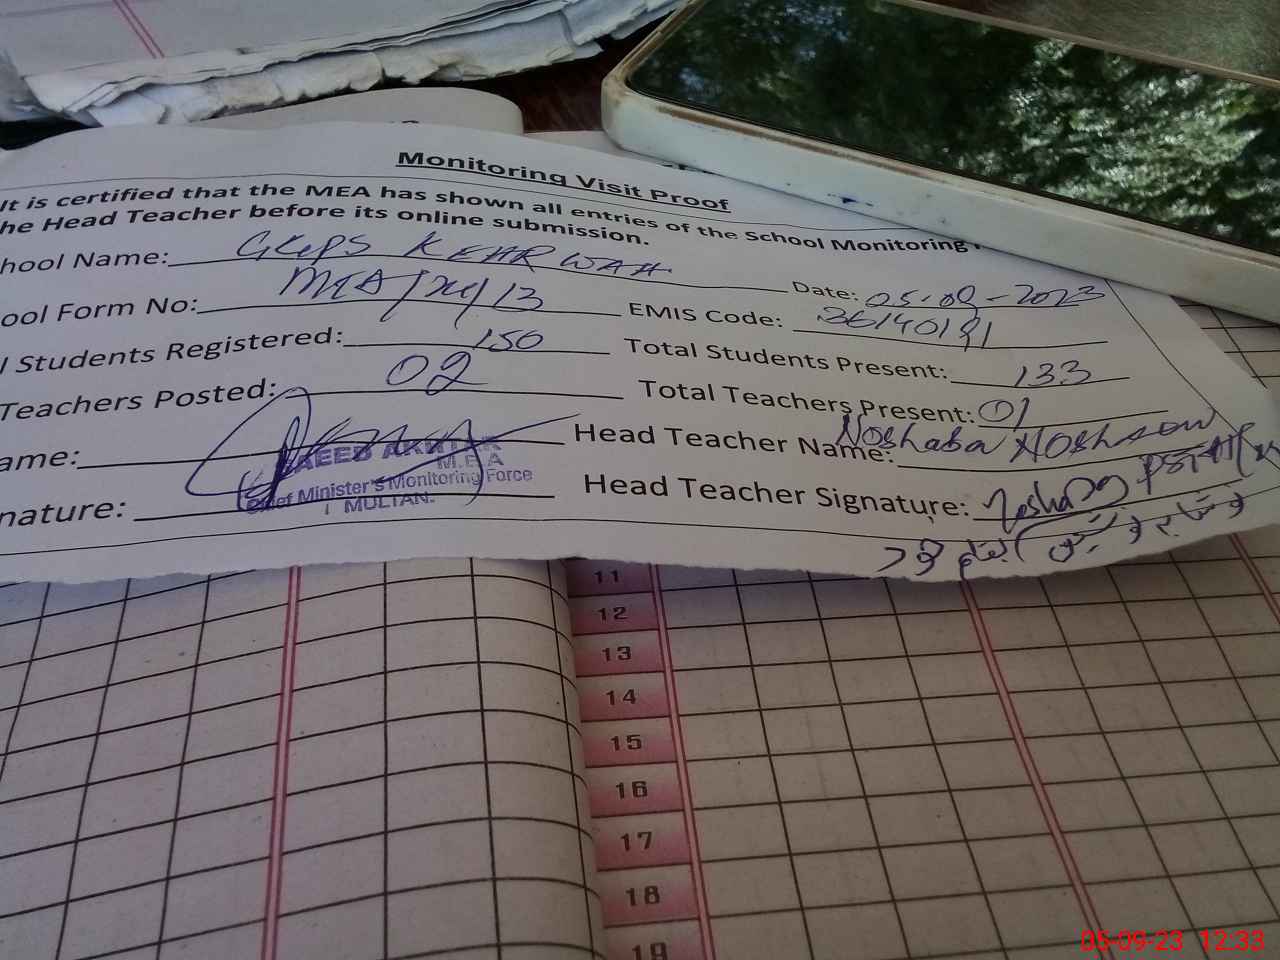 Monitoring Visit Proof
It is certified that the MEA has shown all entries of the School Monitoring
he Head Teacher before its online submission.
hool Name: GGPS KEHR WAH
Date: 05-09-2023
ool Form No: MEA/ /13
EMIS Code: 36140191
l Students Registered: 150
Total Students Present: 133
Teachers Posted: 02
Total Teachers Present: 01
ame:
Head Teacher Name: Noshaba
nature:
Head Teacher Signature:
SAEED AKHTAR
M.E.A
Chief Minister's Monitoring Force
MULTAN.
11
12
13
14
15
16
17
18
19
05-09-23 12:33